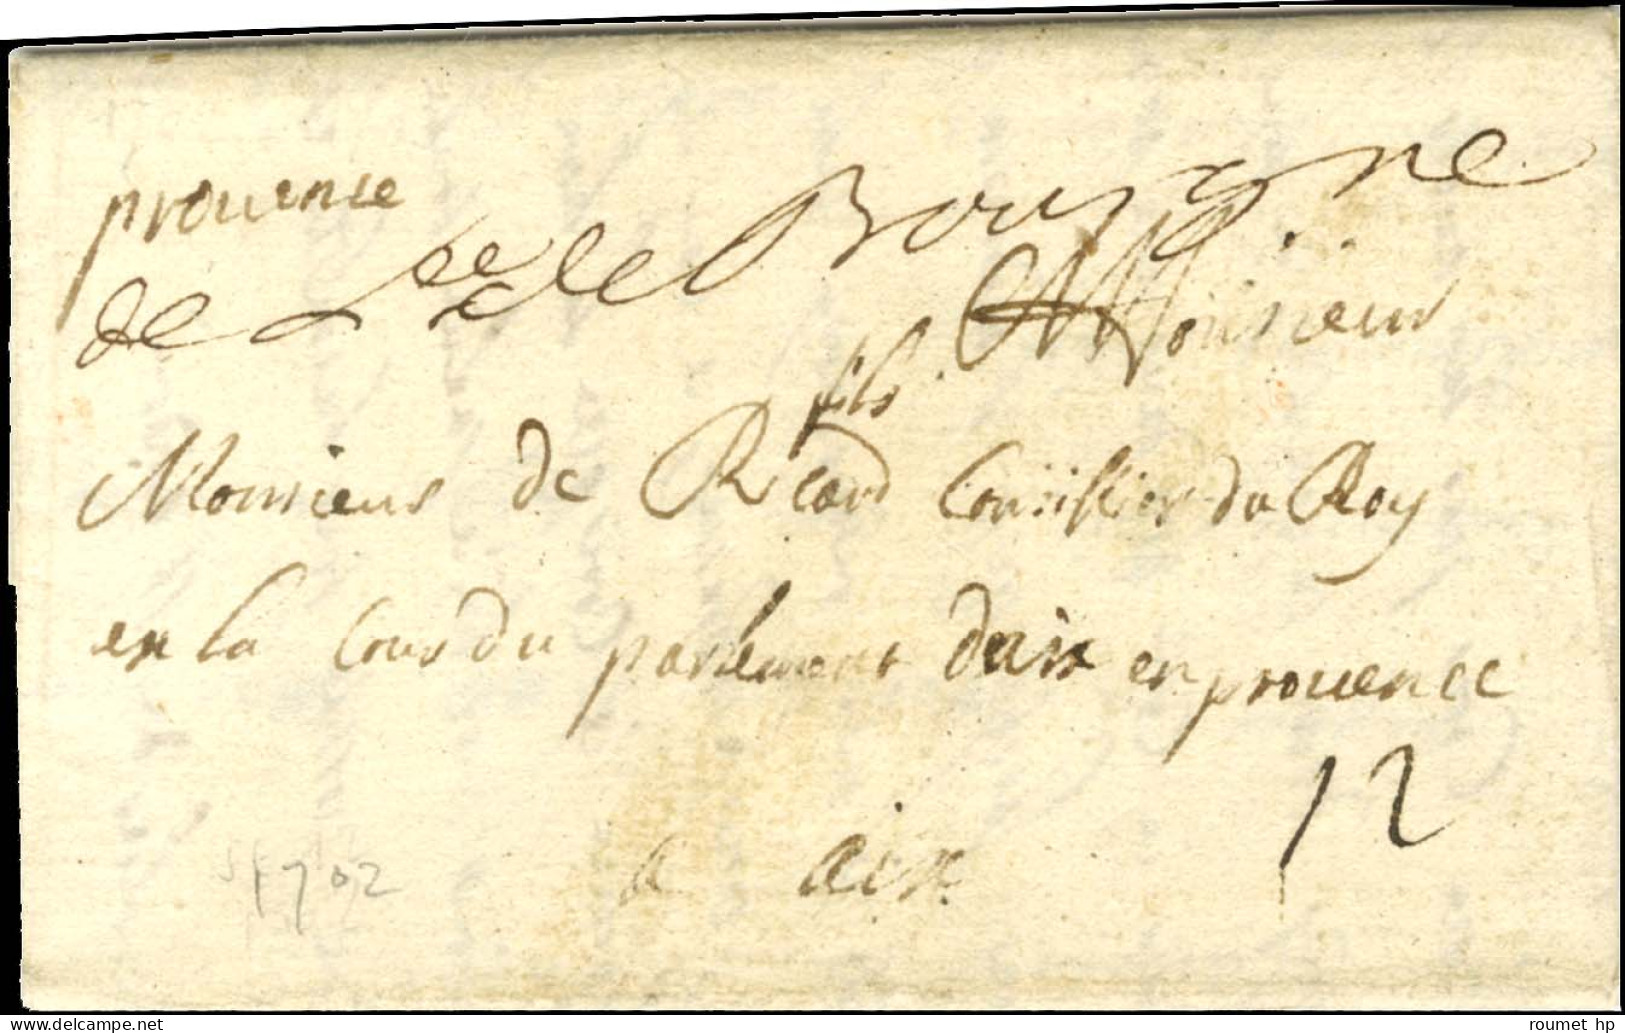 provence
de Lee de Bourgne
Monsieur
fils
Monsieur de Ricard Conseillier du Roy
en la Cour du parlement daix en provence
12
a aix
1702
roumet hp